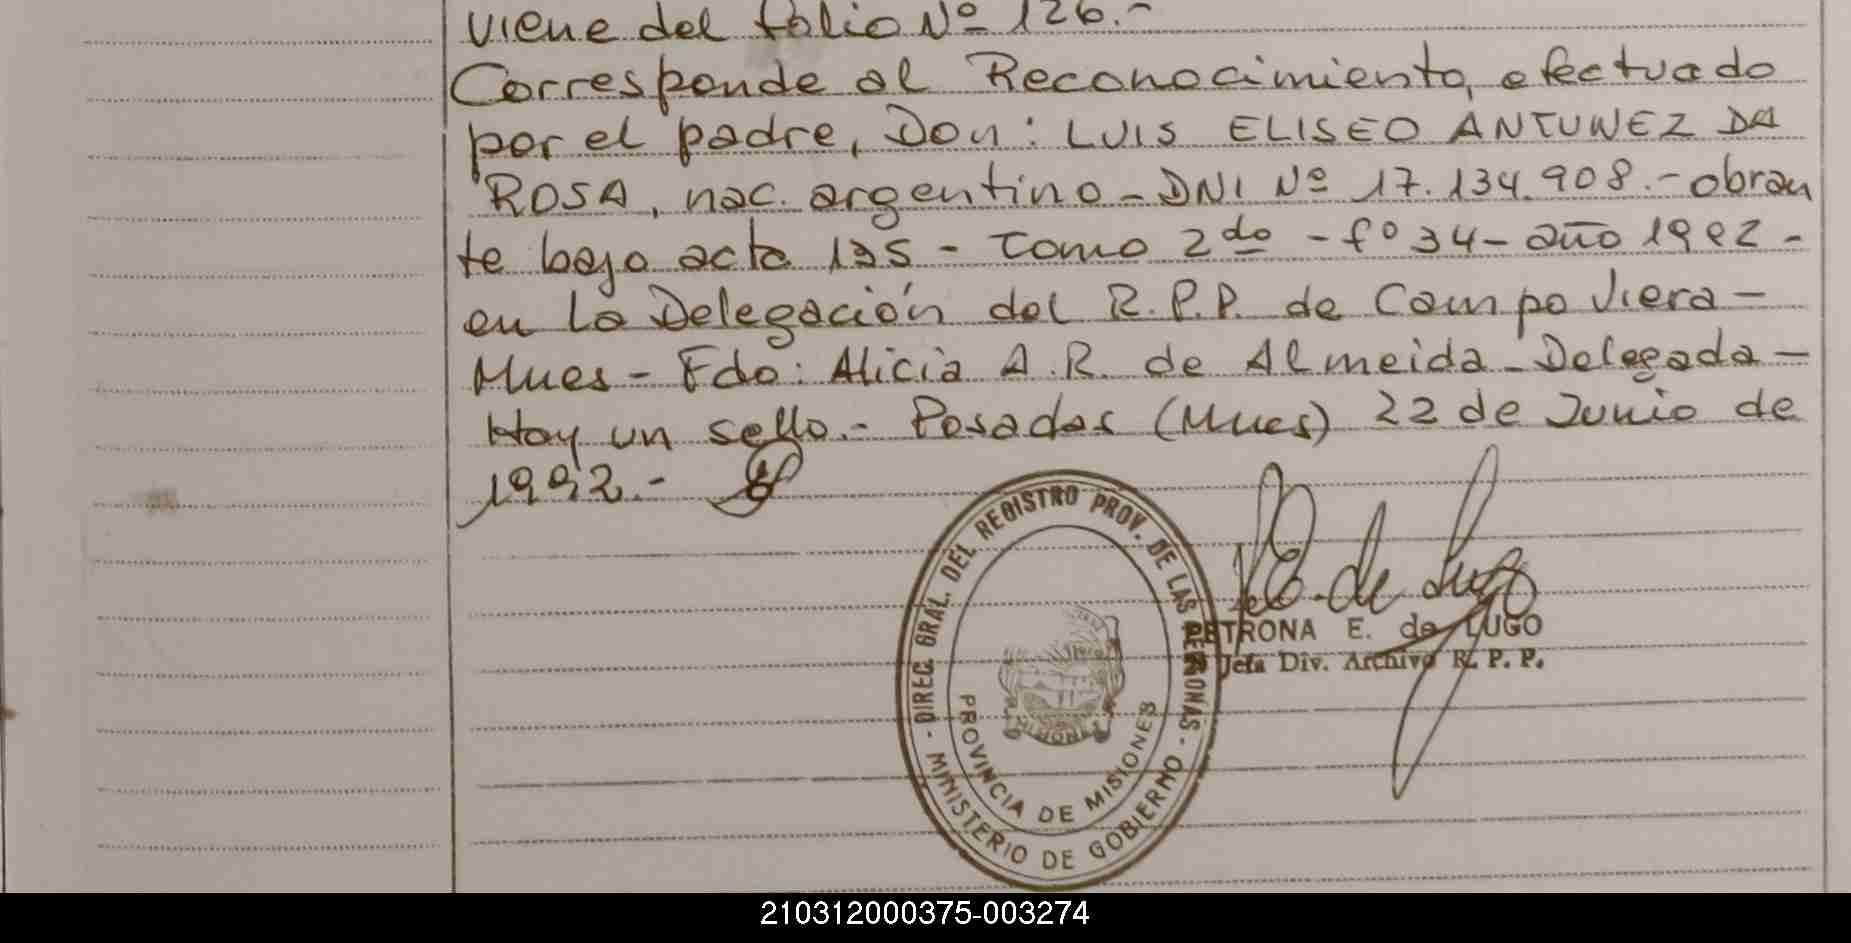 viene del folio Nº 126.-
Corresponde al Reconocimiento, efectuado
por el padre, Don: LUIS ELISEO ANTUNEZ DA
ROSA, nac. argentino - DNI Nº 17.134.908.- obran
te bajo acta 135 - Tomo 2do - fº 34 - año 1992 -
en la Delegación del R.P.P. de Campo Viera -
Mnes - Fdo: Alicia A.R. de Almeida - Delegada -
Hay un sello.- Posadas (Mnes) 22 de Junio de
1992.-
DIREC. GRAL. DEL REGISTRO PROV. DE LAS PERSONAS
PROVINCIA DE MISIONES
MINISTERIO DE GOBIERNO
PETRONA E. de LUGO
Jefa Div. Archivo R. P. P.
210312000375-003274